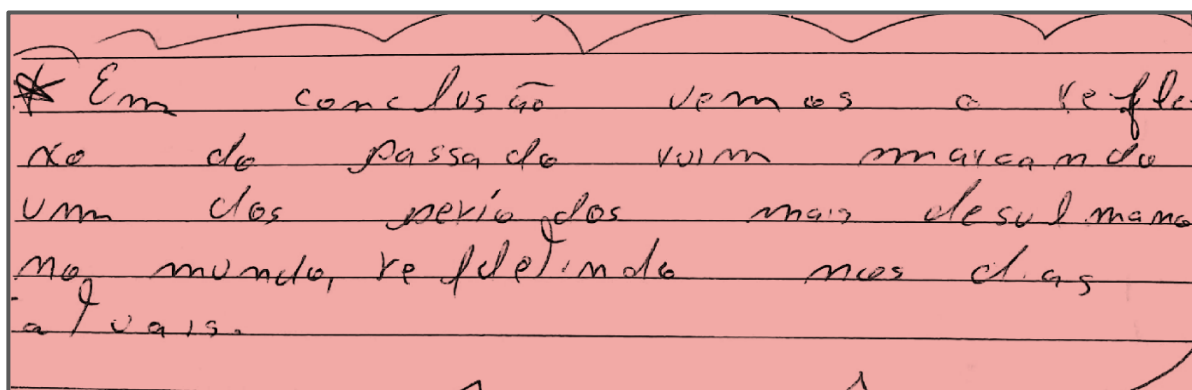 * Em conclusão vemos o refle
xo do passado ruim marcando
um dos períodos mais desulmano
no mundo, refletindo nos dias
atuais.